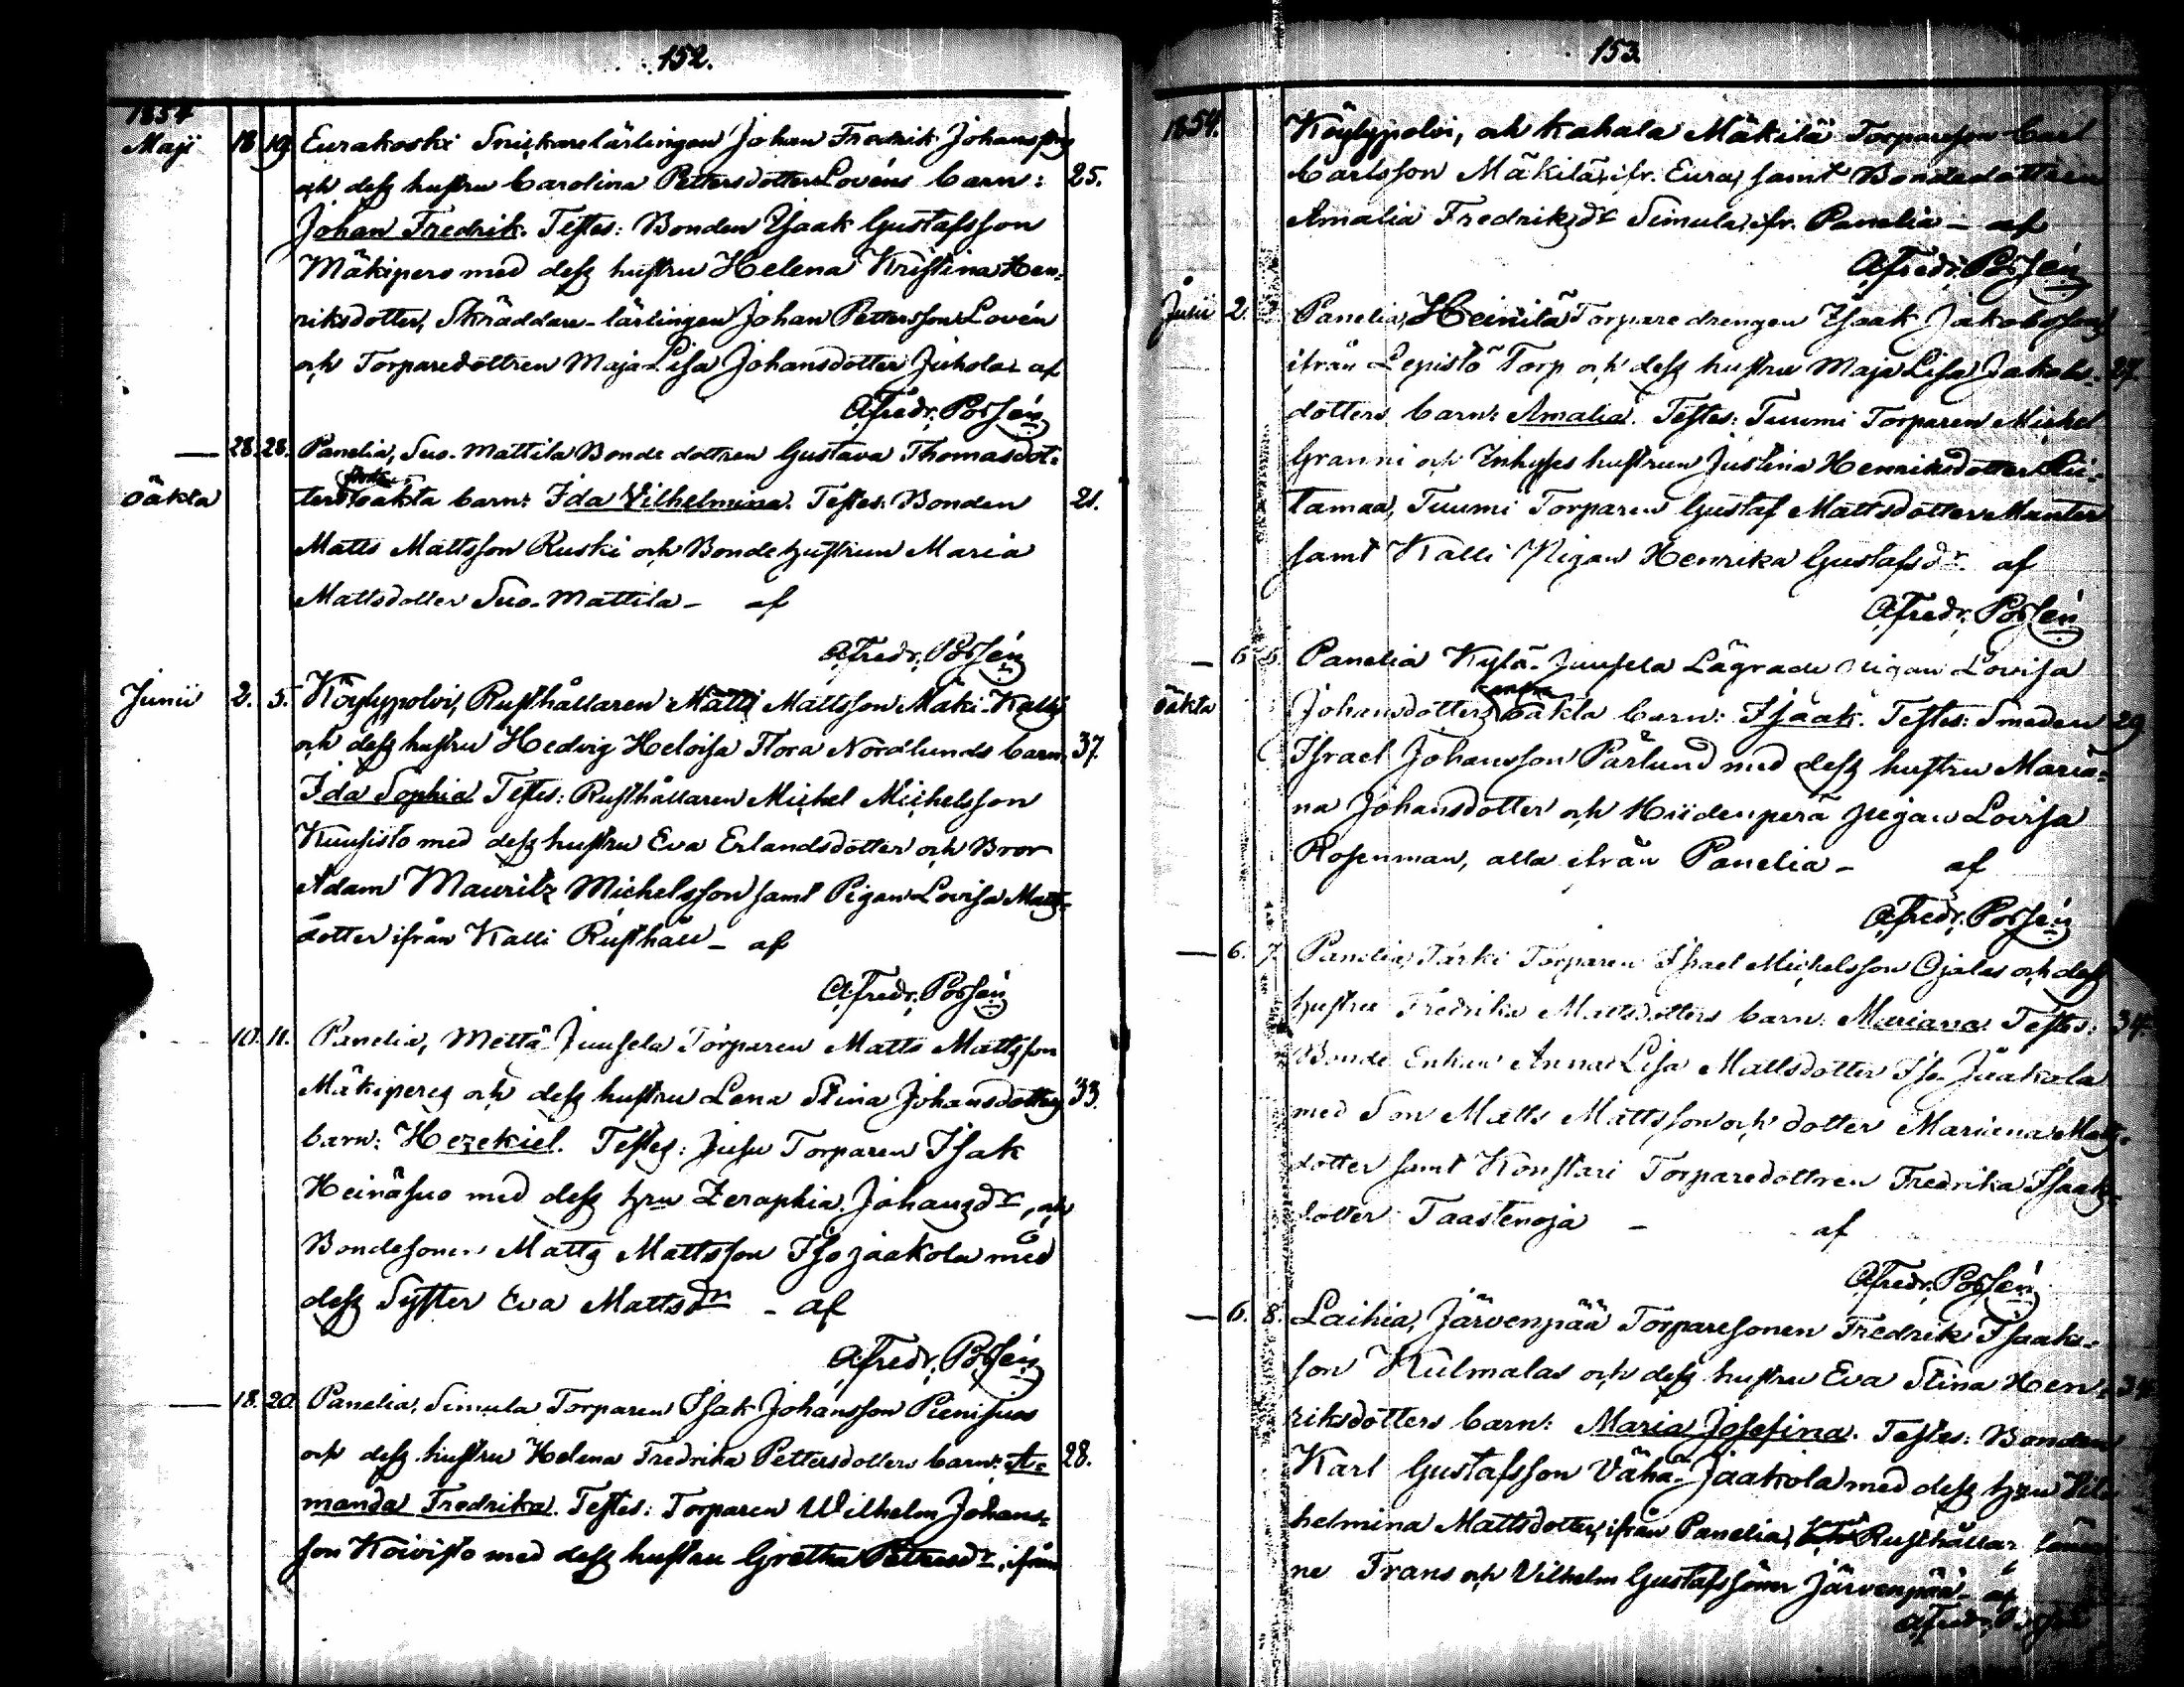 152.
1854
Maji 18 19. Eurakoski Snickarelärlingen Johan Fredrik Johanssons
och dess hustru Carolina Pettersdotter Lovéns barn: 25.
Johan Fredrik. Testes: Bonden Isaak Gustafsson
Mäkipere med dess hustru Helena Kristina Hen-
riksdotter, Skräddare-lärlingen Johan Pettersson Lovén
och Torparedottren Maja Lisa Johansdotter af
A. Fredr. Possén
— 28. 28. Panelia, Suo-Mattila Bonde dottren Gustava Thomasdot-
oäkta ters oäkta barn: Ida Vilhelmina. Testes: Bonden 21.
Matts Mattsson Ruski och Bonde hustrun Maria
Mattsdotter Suo-Mattila — af
A. Fredr. Possén
Junii 2. 5. Köylypolvi, Rusthållaren Matts Mattsson Mäki-Kalli
och dess hustru Hedvig Heloisa Flora Nordlunds barn 37.
Ida Sophia Testes: Rusthållaren Michel Michelsson
Kuusisto med dess hustru Eva Erlandsdotter och Bror
Adam Mauritz Michelsson samt Pigan Lovisa Matts-
dotter ifrån Kalli Rusthåll — af
A. Fredr. Possén
10. 11. Panelia, Mettä-Juusela Torparen Matts Mattsson
Mäkiperes och dess hustru Lena Stina Johansdotters 33.
barn: Hezekiel. Testes: Torparen Isak
Heinäsuo med dess hru Zeraphia Johansdr, och
Bondesonen Matts Mattsson Isojaakola med
dess Syster Eva Mattsdr — af
A. Fredr. Possén
— 18. 20. Panelia, Simula Torparen Isak Johansson Pienisuos
och dess hustru Helena Fredrika Pettersdotters barn: A- 28.
manda Fredrika. Testes: Torparen Wilhelm Johans-
son Koivisto med dess hustru Gretha Pettersdr, ifrån
153.
1854. Köylypolvi, och Kahala Mäkilä Torpareson Carl
Carlsson Mäkilä, ifr. Eura, samt Bondedottren
Amalia Fredriksdr Simula, ifr. Panelia — af
A. Fredr. Possén
Junii 2. 3. Panelia, Heinilä Torpare drengen Isaak Jakobssons
ifrån Lepistö Torp och dess hustru Maja Lisa Jakobs- 27.
dotters barn: Amalia. Testes: Tuumi Torparen Michel
Granni och Inhyses hustrun Justina Henriksdotter
tamaa, Tuumi Torparen Gustaf Mattsdotter
samt Kalli Pigan Henrika Gustafsdr. af
A. Fredr. Possén
— 6. 6. Panelia Kylä-Juusela Lägrade Pigan Lovisa
oäkta Johansdotters oäkta barn: Isaak. Testes: Smeden 29
Israel Johansson Pärlund med dess hustru Maria-
na Johansdotter och Hiidenperä Pigan Lovisa
Rosenman, alla ifrån Panelia — af
A. Fredr. Possén
— 6. 7. Panelia, Torparen Israel Michelsson Ojalas och dess
hustru Fredrika Mattsdotters barn: Mariana Testes: 34.
Bonde Enkan Anna Lisa Mattsdotter Iso-Jaakola
med Son Matts Mattsson och dotter Mariana Matts-
dotter samt Konstari Torparedottren Fredrika Isaaks-
dotter Taastenoja — af
A. Fredr. Possén
— 6. 8. Laihia, Järvenpää Torparesonen Fredrik Isaaks-
son Kulmalas och dess hustru Eva Stina Hen- 34.
riksdotters barn: Maria Josefina. Testes: Bonden
Karl Gustafsson Vähä-Jaakola med dess hru Vil-
helmina Mattsdotter, ifrån Panelia, samt Rusthållar söner-
ne Frans och Vilhelm Gustafssöner Järvenpää — af
A. Fredr. Possén